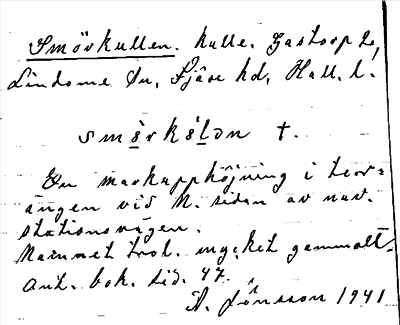 Smörkullen. kulle. Gastorp 2,
Lindome sn, Fjäre hd, Hall. l.
smörkələn †.
En markupphöjning i
ängen vid N. sidan av nuv.
stationsvägen.
Namnet trol. mycket gammalt.
Ant. bok. sid. 47.
A. Jönsson 1941